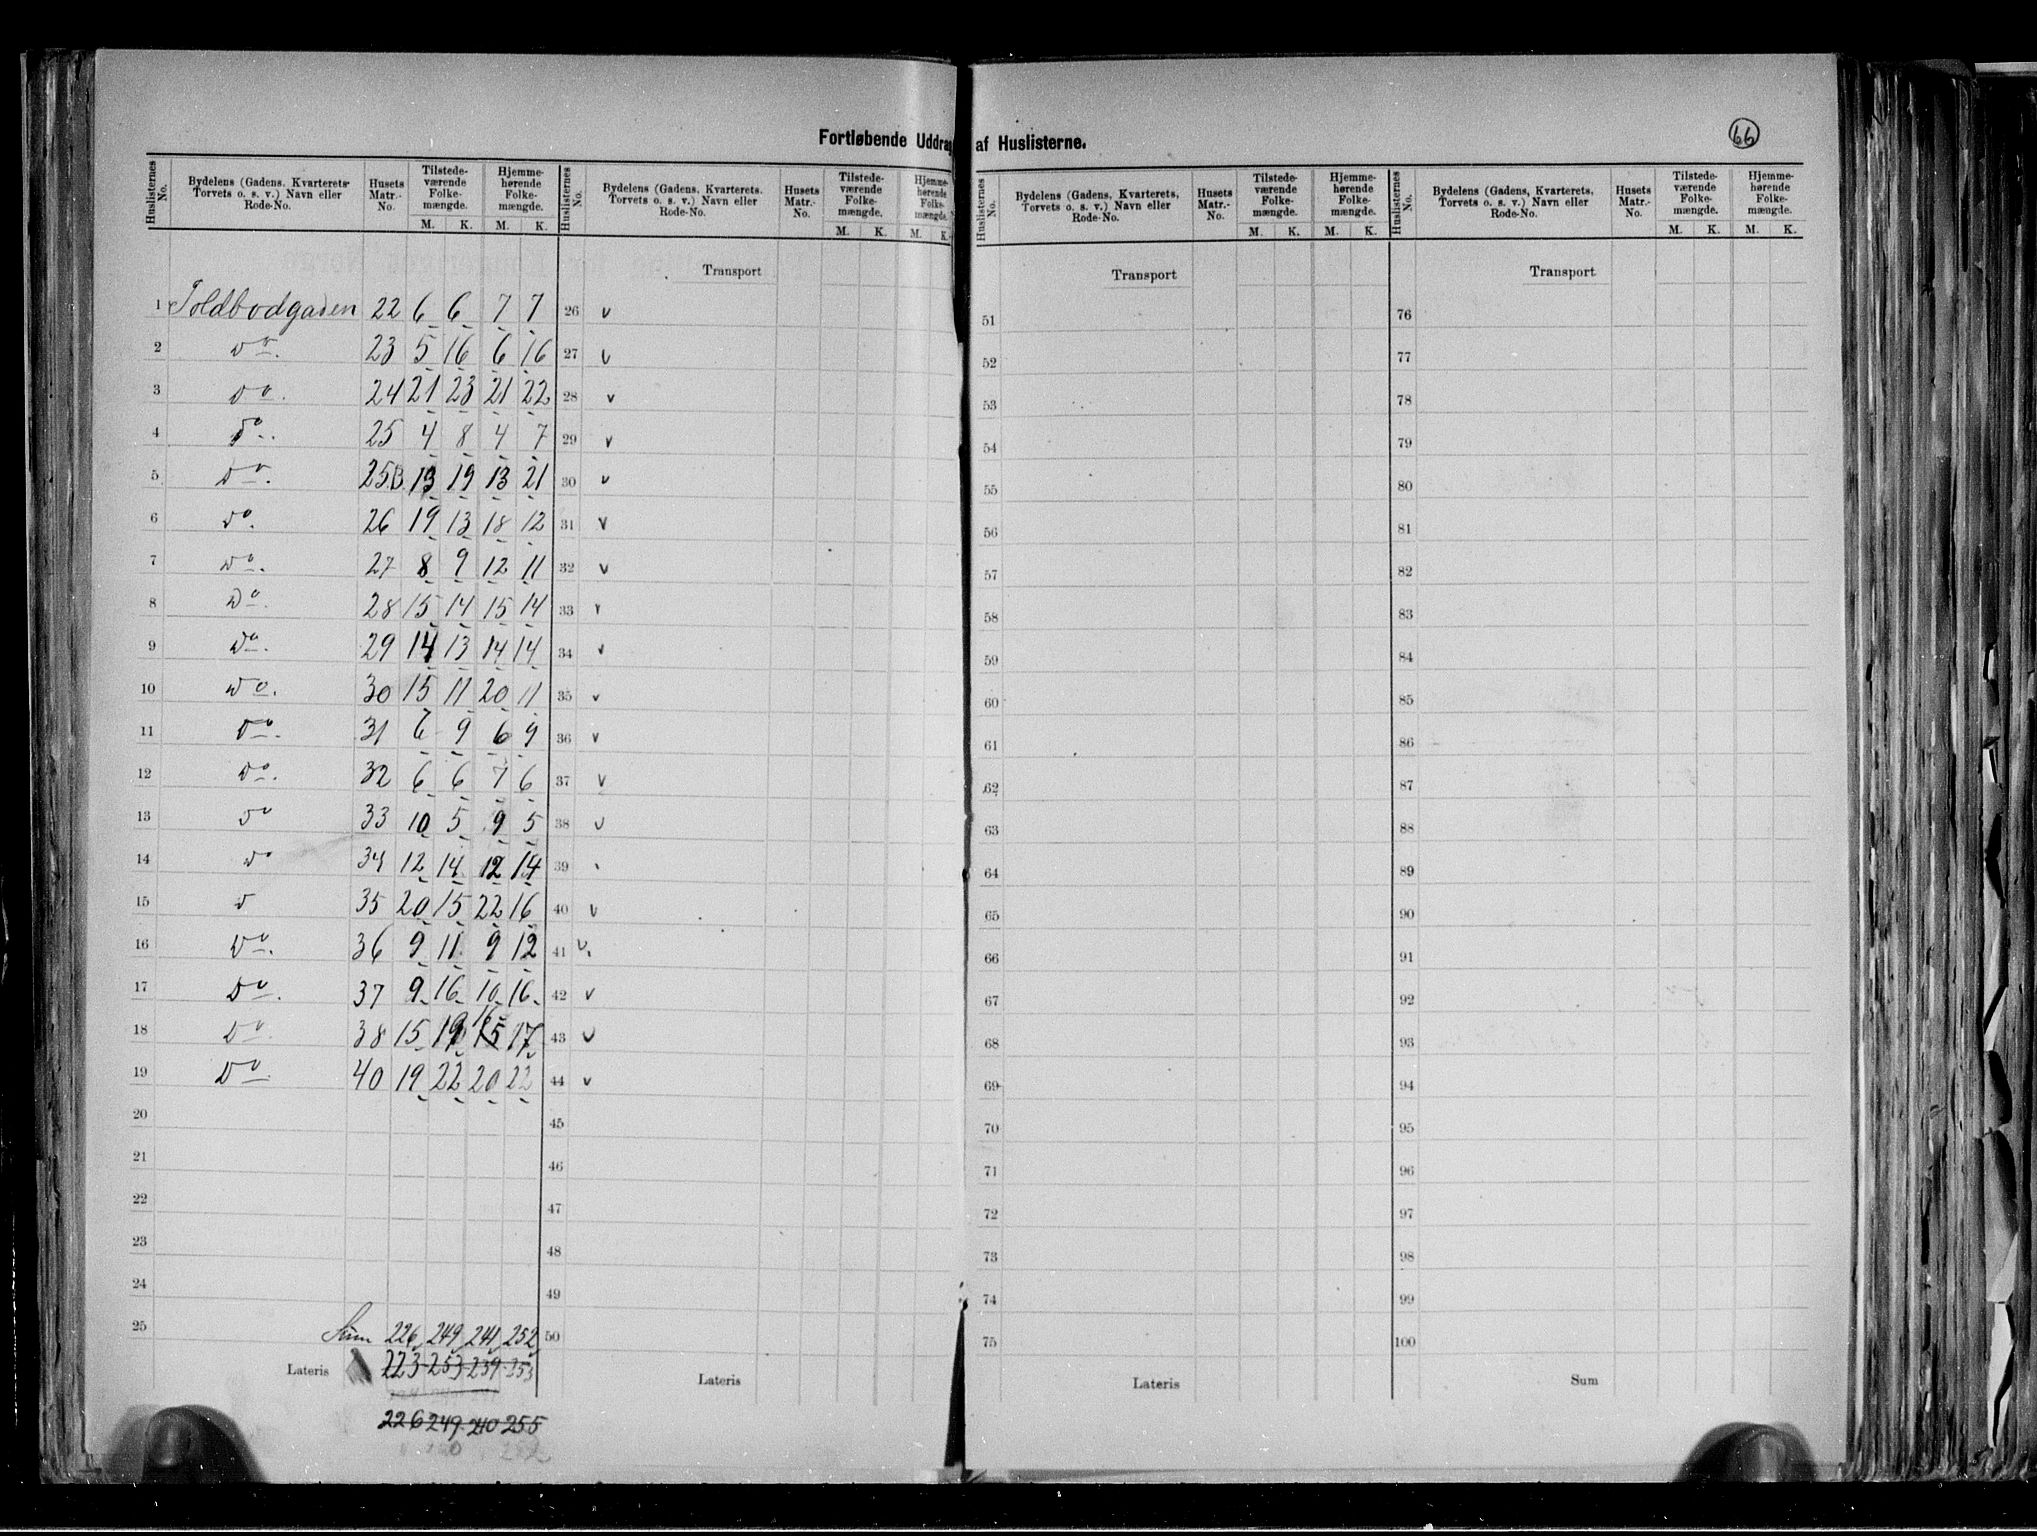 Fortløbende Uddrag af Huslisterne.
66
Huslisternes No. Bydelens (Gadens, Kvarterets, Torvets o. s. v.) Navn eller Rode-No. Husets Matr.-No. Tilstedeværende Folkemængde. M. K. Hjemmehørende Folkemængde. M. K.
Huslisternes No. Bydelens (Gadens, Kvarterets, Torvets o. s. v.) Navn eller Rode-No. Husets Matr.-No. Tilstedeværende Folkemængde. M. K. Hjemmehørende Folkemængde. M. K.
Huslisternes No. Bydelens (Gadens, Kvarterets, Torvets o. s. v.) Navn eller Rode-No. Husets Matr.-No. Tilstedeværende Folkemængde. M. K. Hjemmehørende Folkemængde. M. K.
Huslisternes No. Bydelens (Gadens, Kvarterets, Torvets o. s. v.) Navn eller Rode-No. Husets Matr.-No. Tilstedeværende Folkemængde. M. K. Hjemmehørende Folkemængde. M. K.
Transport Transport Transport
1 Toldbodgaden 22 6 6 7 7 26 v 51 76
2 do. 23 5 16 6 16 27 v 52 77
3 do. 24 21 23 21 22 28 v 53 78
4 do. 25 4 8 4 7 29 v 54 79
5 do. 25B 13 19 13 21 30 v 55 80
6 do. 26 19 13 18 12 31 v 56 81
7 do. 27 8 9 12 11 32 v 57 82
8 Do. 28 15 14 15 14 33 v 58 83
9 Do. 29 14 13 14 14 34 v 59 84
10 do. 30 15 11 20 11 35 v 60 85
11 do. 31 6 9 6 9 36 v 61 86
12 do. 32 6 6 7 6 37 v 62 87
13 do 33 10 5 9 5 38 v 63 88
14 do 34 12 14 12 14 39 64 89
15 d 35 20 15 22 16 40 v 65 90
16 Do. 36 9 11 9 12 41 v 66 91
17 Do. 37 9 16 10 16 42 v 67 92
18 Do. 38 15 19 15 16 17 43 v 68 93
19 Do. 40 19 22 20 22 44 v 69 94
20 45 70 95
21 46 71 96
22 47 72 97
23 48 73 98
24 49 74 99
25 Sum 226 249 241 252 50 75 100
Lateris 223 253 239 253 Lateris Lateris Sum
226 249 240 255
252